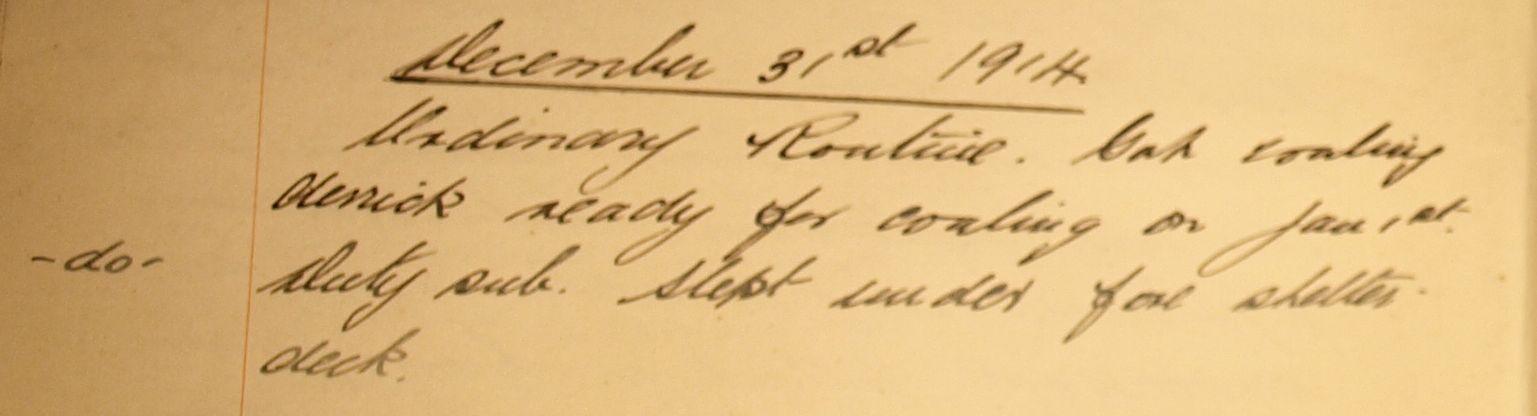 December 31st 1914
Ordinary Routine. Got coaling
derrick ready for coaling on Jan 1st.
-do- Duty sub. Slept under fore shelter-
deck.